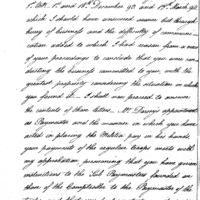 1st Octr. 1st and 18th December 93 and 19th March 94
which I should have answered sooner but through
hurry of business and the difficulty of communi-
cation added to which I had reason from a view
of your proceedings to conclude that you were con-
ducting the business committed to you, with the
greatest propriety considering the situation in which
you ... I shall now proceed to answer
the contents of them letters. Mr. ... appointment
as Paymaster and the manner in which you have
acted in placing the Militia pay in his hands
your payments of the regular troops meets with
my approbation, presuming that you have given
instructions to the Sub Paymasters founded on
those of the Comptroller to the Paymaster of the